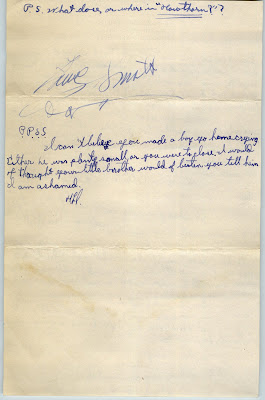 P.S. What does, or where in "Hawthorn P"?
Smith
P.P.S
I can't believe you made a boy go home crying
Either he was plenty small or you were to close, I would
of thought your little brother would of beaten you tell him
I am ashamed.